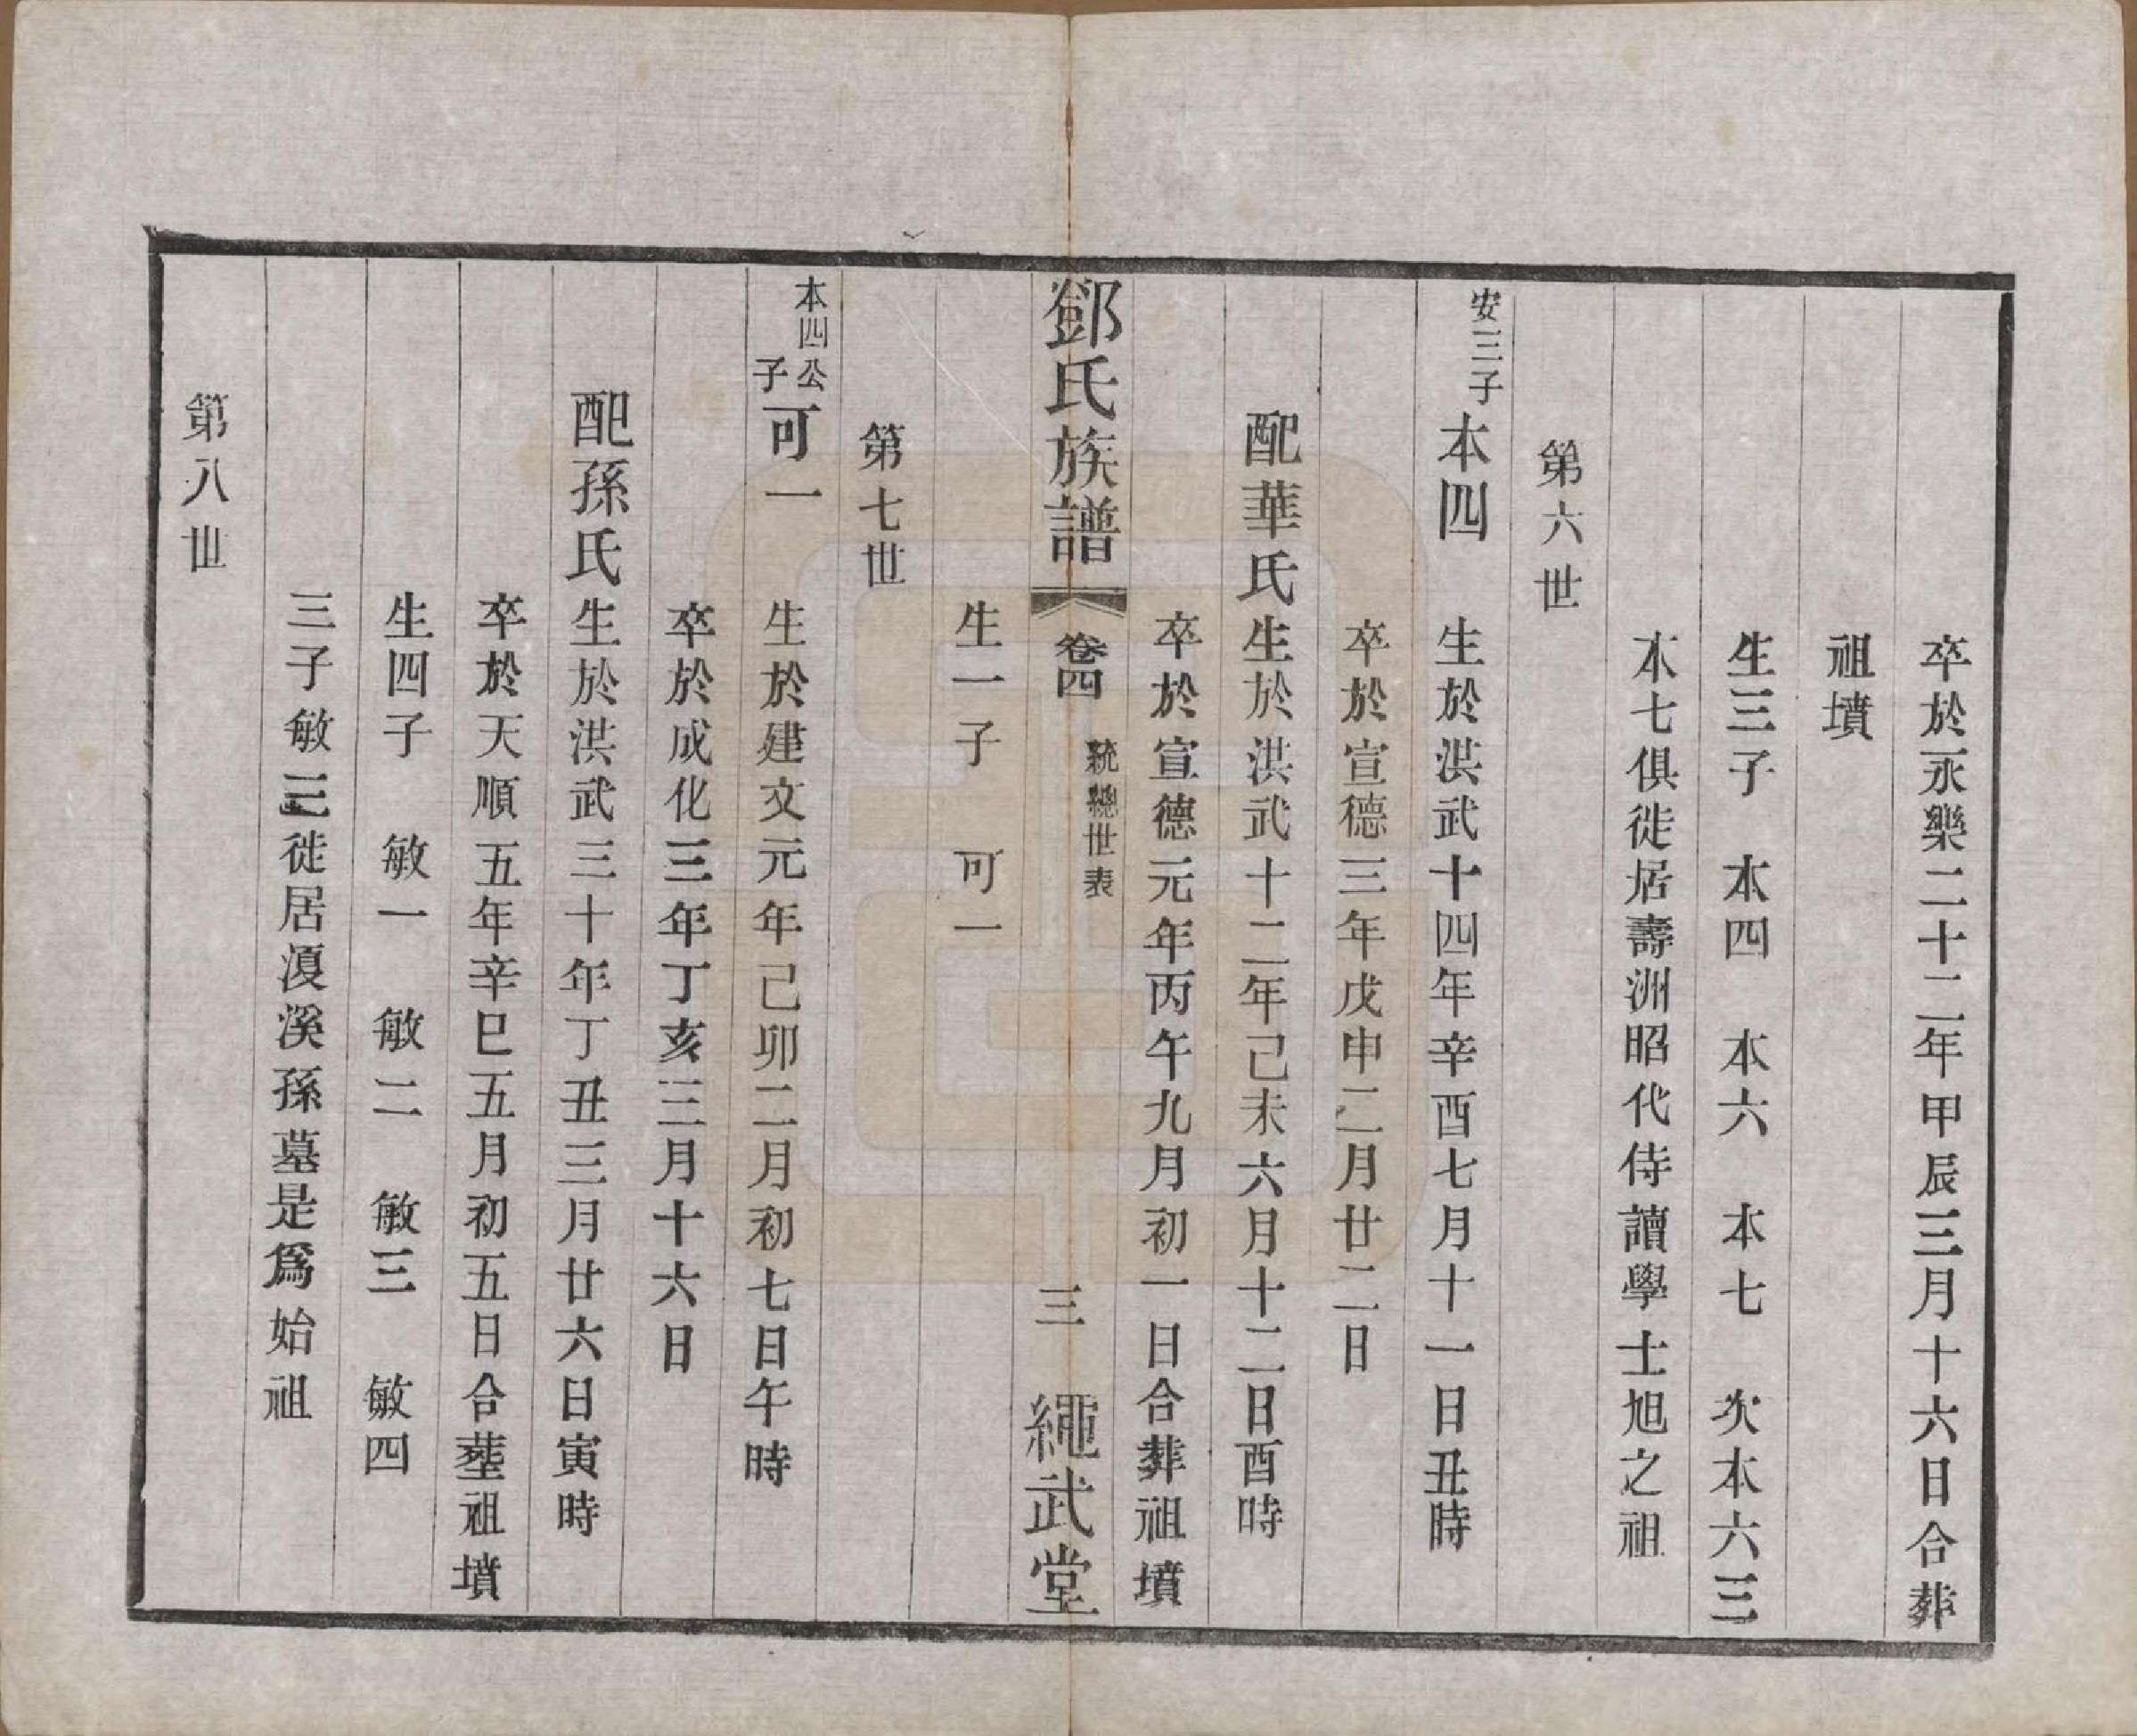 卒於永樂二十二年甲辰三月十六日合葬
祖墳
生三子　本四　本六　本七　次本六三
本七俱徙居壽洲昭代侍讀學士旭之祖
第六世
安三子本四　生於洪武十四年辛酉七月十一日丑時
卒於宣德三年戊申二月廿二日
配華氏生於洪武十二年己未六月十二日酉時
卒於宣德元年丙午九月初一日合葬祖墳
鄧氏族譜　卷四　統總世表　三　繩武堂
生一子　可一
第七世
本四公子可一　生於建文元年己卯二月初七日午時
卒於成化三年丁亥三月十六日
配孫氏生於洪武三十年丁丑三月廿六日寅時
卒於天順五年辛巳五月初五日合塟祖墳
生四子　敏一　敏二　敏三　敏四
三子敏三徙居湀溪孫墓是爲始祖
第八世